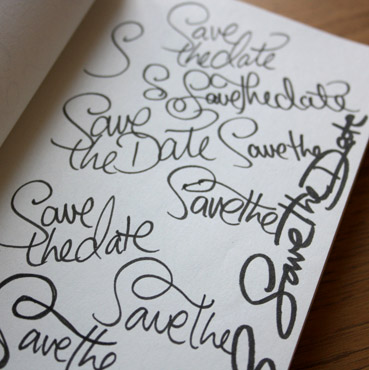 Save
the date
S
S Save the date
Save
the Date
Save the
Save the
Save the Date
Save
the date
Save the
Save the
S